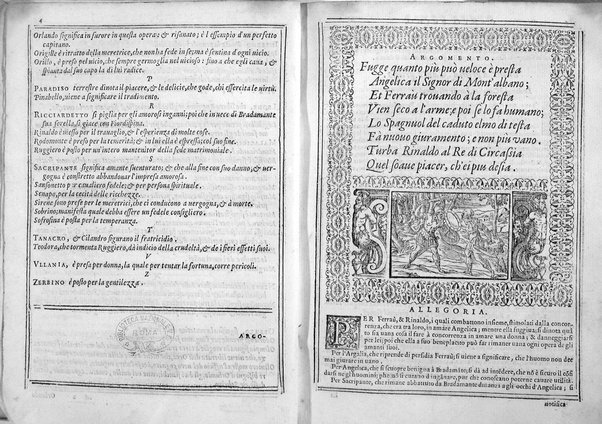 4
Orlando significa in furore in questa opera; & risanato; è l'essempio d'un perfetto
capitano.
Origille è ritratto della meretrice, che non ha fede in se, ma è sentina d'ogni vicio.
Orillo, è preso pel vicio, che sempre germoglia nel vicioso: sino a che egli cava, &
spianta dal suo capo la di lui radice.
P
PARADISO terrestre dinota il piacere, & le delicie, che gode, chi essercita le virtù.
Pinabello, viene a significare il tradimento.
R
RICCIARDETTO si piglia per gli amorosi inganni; poi che in vece di Bradamante
sua sorella, si giace con Fiordispina.
Rinaldo è messo per il travaglio, & l'esperienza di molte cose.
Rodomonte è preso per la temerità; & in lui ella è espressa, col suo fine.
Ruggiero è posto per un'intero mantenitor della fede matrimoniale.
S
SACRIPANTE significa amante suenturato; & che alla fine con suo danno, & ver-
gogna è constretto abbandonar l'impresa amorosa.
Sansonetto p un cavaliero fedele; & per persona spirituale.
Senapo, per la cecità delle ricchezze.
Sirene sono prese per le meretrici, che ci conducono a vergogna, & à morte.
Sobrino, manifesta quale debba essere un fedele consigliero.
Sofrosina è posta per la temperanza.
T
TANACRO, & Cilandro figurano il fratricidio.
Teodora, che tormenta Ruggiero, dà indicio della crudeltà, & de i fieri effetti suoi.
V
VLLANIA, è presa per donna, la quale per tentar la fortuna, corre pericoli.
Z
ZERBINO è posto per la gentilezza.
ARGO-
ARGOMENTO.
Fugge quanto più può veloce è presta
Angelica il Signor di Mont'albano;
Et Ferraù trouando à la foresta
Vien seco a l'arme; poi se lo fa humano;
Lo Spagnuol del caduto elmo di testa
Fà nuouo giuramento; e non piu vano.
Turba Rinaldo al Re di Circassia
Quel soaue piacer, ch'ei piu desia.
ALLEGORIA.
PER Ferraù, & Rinaldo, i quali combattono insieme, stimolati dalla concor-
renza, che era tra loro, in amare Angelica; mentre ella fuggiua; si dinota qual
sia uana cosa il fare à concorrenza in amare una donna; & danneggiarsi
per lei; poi che ella a suo beneplacito può far rimaner uana ogni opera de gli
amanti suoi.
Per l'Argalia, che riprende di perfidia Ferraù; si uiene a significare, che l'huomo non dee
mai giurare in uano.
darsi se negl'huomini; pche nõ si curano d'ingãnare, pur che conoscano poterne cauare utilità.
Per Sacripante, che rimane abbattuto da Bradamante dinanzi a gli occhi d'Angelica; si
notifica